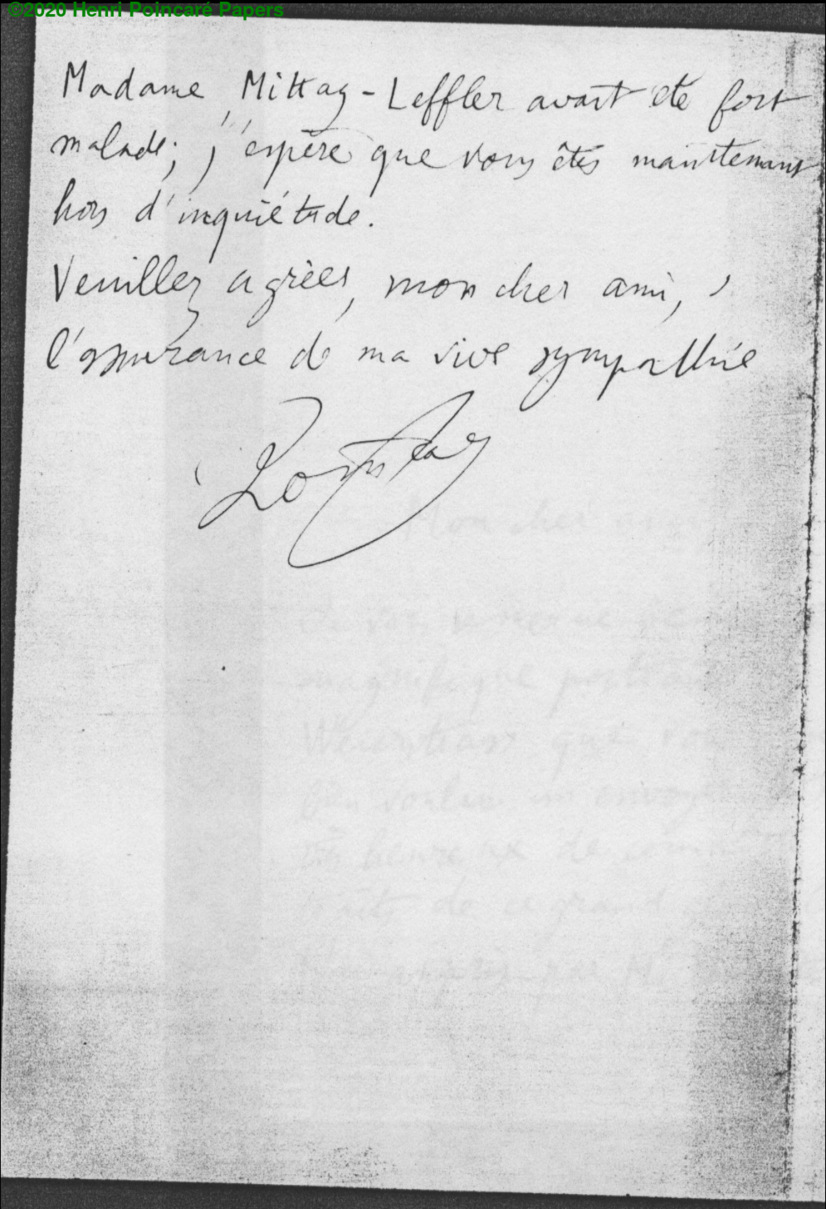 ©2020 Henri Poincaré Papers
Madame Mittag-Leffler avait été fort
malade; j'espère que vous êtes maintenant
hors d'inquiétude.
Veuillez agréer, mon cher ami,
l'assurance de ma vive sympathie
Poincaré
Mon cher ami
magnifique portrait
Weierstrass que vous